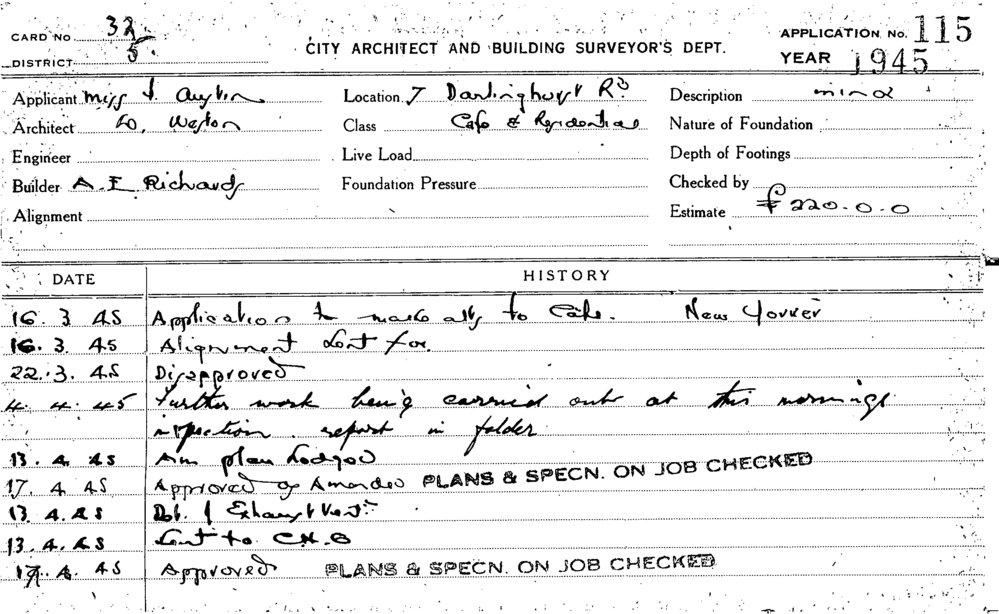 CARD No 32
DISTRICT 5
CITY ARCHITECT AND BUILDING SURVEYOR'S DEPT.
APPLICATION No. 115
YEAR 1945
Applicant Miss
Location 7 Darlinghurst Rd
Description minor
Architect Weston
Class Cafe & Residential
Nature of Foundation
Engineer
Live Load
Depth of Footings
Builder A. E Richards
Foundation Pressure
Checked by
Alignment
Estimate £220.0.0
DATE HISTORY
16. 3. 45 Application to make alts to Cafe. New Yorker
16. 3. 45 Alignment sent for.
22. 3. 45 Disapproved
4. 4. 45 Further work being carried out at this mornings
inspection. report in folder
13. 4. 45 Am. plan Lodged
17. 4. 45 Approved as Amended PLANS & SPECN. ON JOB CHECKED
13. 4. 45 Exhaust Vent.
13. 4. 45 Sent to C.H.O
17. 4. 45 Approved PLANS & SPECN. ON JOB CHECKED